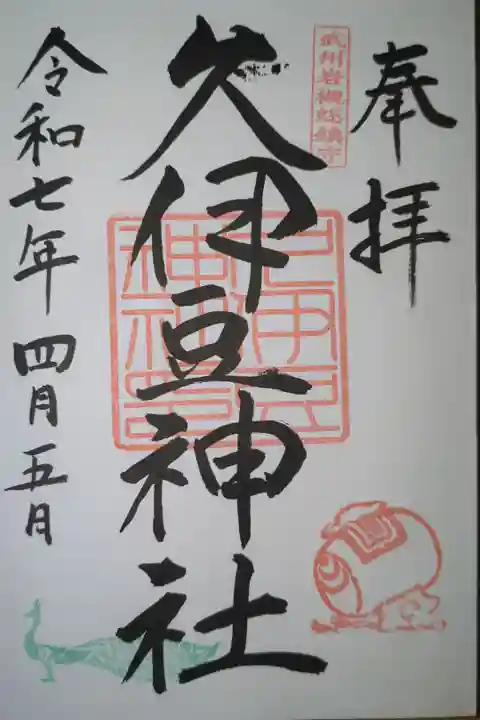 奉拝
武州岩槻総鎮守
久伊豆神社
久伊豆
神社印
令和七年四月五日